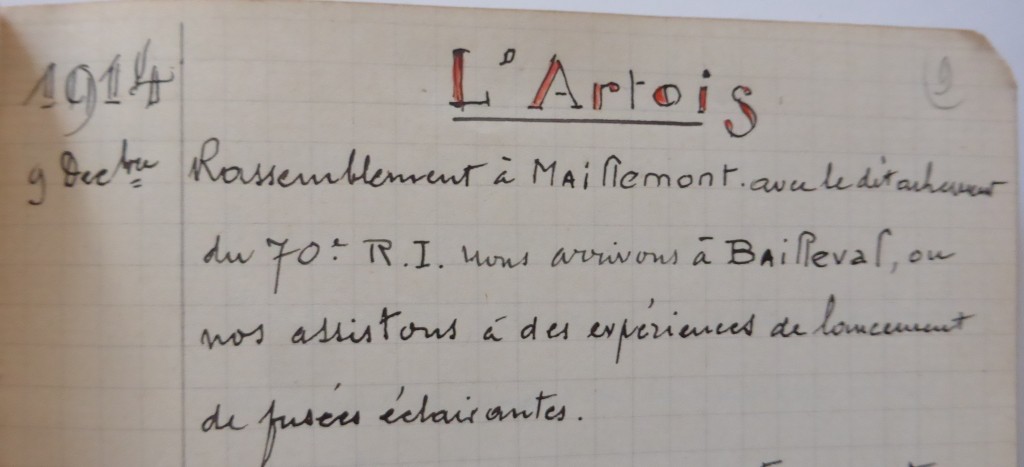 1914
L'Artois
9 Decbre Rassemblement à Maillemont. avec le détachement
du 70e R.I. nous arrivons à Bailleval, ou
nos assistons à des expériences de lancement
de fusées éclairantes.